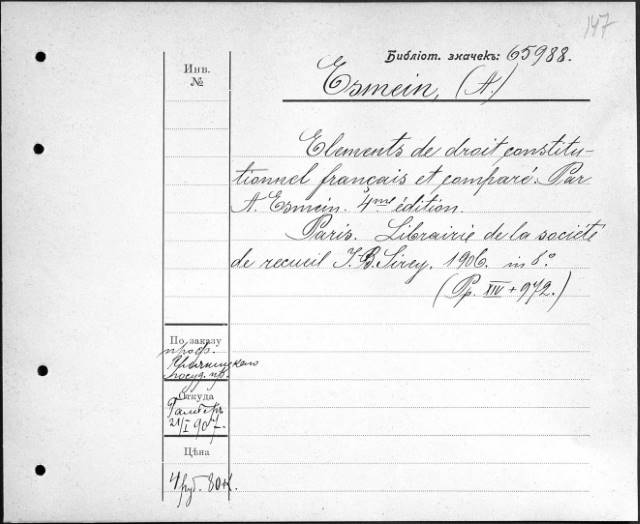 147
Библіот. значекъ: 65988.
Инв.
№
Esmein, (A.)
Elements de droit constitu-
tionnel français et comparé. Par
A. Esmein. 4me édition.
Paris. Librairie de la société
de recueil J. B. Sirey. 1906. in 8°
(Pp. XIV + 972.)
По заказу
проф.
госуд. пр.
Откуда
21/I 907.
Цѣна
4 руб. 80 к.